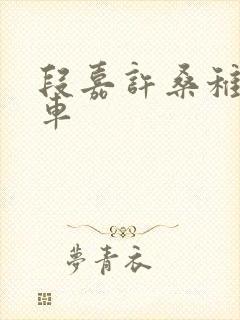 段嘉許桑稚
車
夢青衣